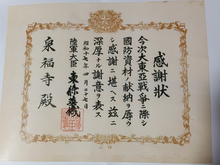 感謝狀
今次大東亞戰爭ニ際シ
國防資材ノ獻納ヲ辱ウ
シ感謝ニ堪ヘス茲ニ
深厚ナル謝意ヲ表ス
昭和十七年四月二十七日
陸軍大臣 東條英機
泉福寺殿